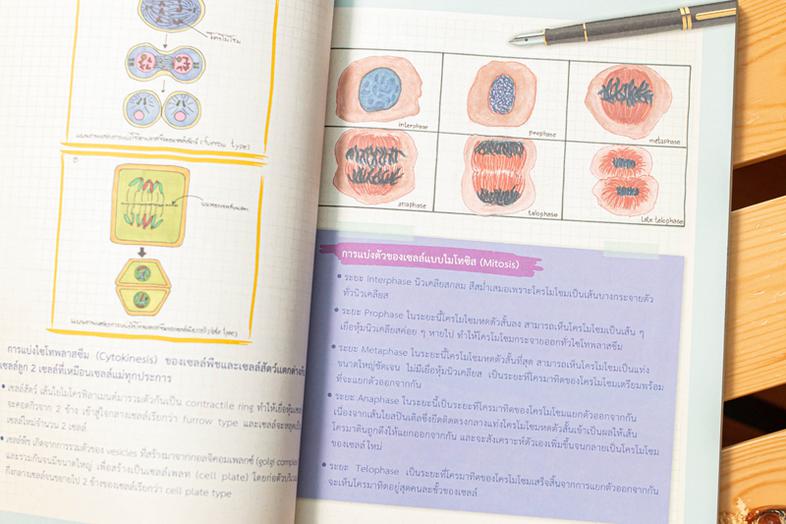 โครโมโซม
(furrow type)
(cell plate type)
การแบ่งไซโทพลาสซึม (Cytokinesis) ของเซลล์พืชและเซลล์สัตว์แตกต่างกัน
เซลล์ลูก 2 เซลล์ที่เหมือนเซลล์แม่ทุกประการ
• เซลล์สัตว์ เส้นใยไมโครฟิลาเมนต์มารวมตัวกันเป็น contractile ring ทำให้เยื่อหุ้มเซลล์
จะคอดกิ่วจาก 2 ข้าง เข้าสู่ใจกลางเซลล์เรียกว่า furrow type และเซลล์จะหลุดเป็น
เซลล์ใหม่จำนวน 2 เซลล์
• เซลล์พืช เกิดจากการรวมตัวของ vesicles ที่สร้างมาจากกอลจิคอมเพลกซ์ (golgi complex)
และรวมกันจนมีขนาดใหญ่ เพื่อสร้างเป็นเซลล์เพลท (cell plate) โดยก่อตัวบริเวณ
กึ่งกลางเซลล์จนขยายไป 2 ข้างของเซลล์เรียกว่า cell plate type
interphase
prophase
metaphase
anaphase
telophase
late telophase
การแบ่งตัวของเซลล์แบบไมโทซิส (Mitosis)
• ระยะ Interphase นิวเคลียสกลม สีสม่ำเสมอเพราะโครโมโซมเป็นเส้นบางกระจายตัว
ทั่วนิวเคลียส
• ระยะ Prophase ในระยะนี้โครโมโซมหดตัวสั้นลง สามารถเห็นโครโมโซมเป็นเส้น ๆ
เยื่อหุ้มนิวเคลียสค่อย ๆ หายไป ทำให้โครโมโซมกระจายออกทั่วไซโทพลาสซึม
• ระยะ Metaphase ในระยะนี้โครโมโซมหดตัวสั้นที่สุด สามารถเห็นโครโมโซมเป็นแท่ง
ขนาดใหญ่ชัดเจน ไม่มีเยื่อหุ้มนิวเคลียส เป็นระยะที่โครมาทิดของโครโมโซมเตรียมพร้อม
ที่จะแยกตัวออกจากกัน
• ระยะ Anaphase ในระยะนี้เป็นระยะที่โครมาทิดของโครโมโซมแยกตัวออกจากกัน
เนื่องจากเส้นใยสปินเดิลซึ่งยึดติดตรงกลางแท่งโครโมโซมหดตัวสั้นเข้าเป็นผลให้เส้น
โครมาตินถูกดึงให้แยกออกจากกัน และจะสังเคราะห์ตัวเองเพิ่มขึ้นจนกลายเป็นโครโมโซม
ของเซลล์ใหม่
• ระยะ Telophase เป็นระยะที่โครมาทิดของโครโมโซมเสร็จสิ้นจากการแยกตัวออกจากกัน
จะเห็นโครมาทิดอยู่สุดคนละขั้วของเซลล์